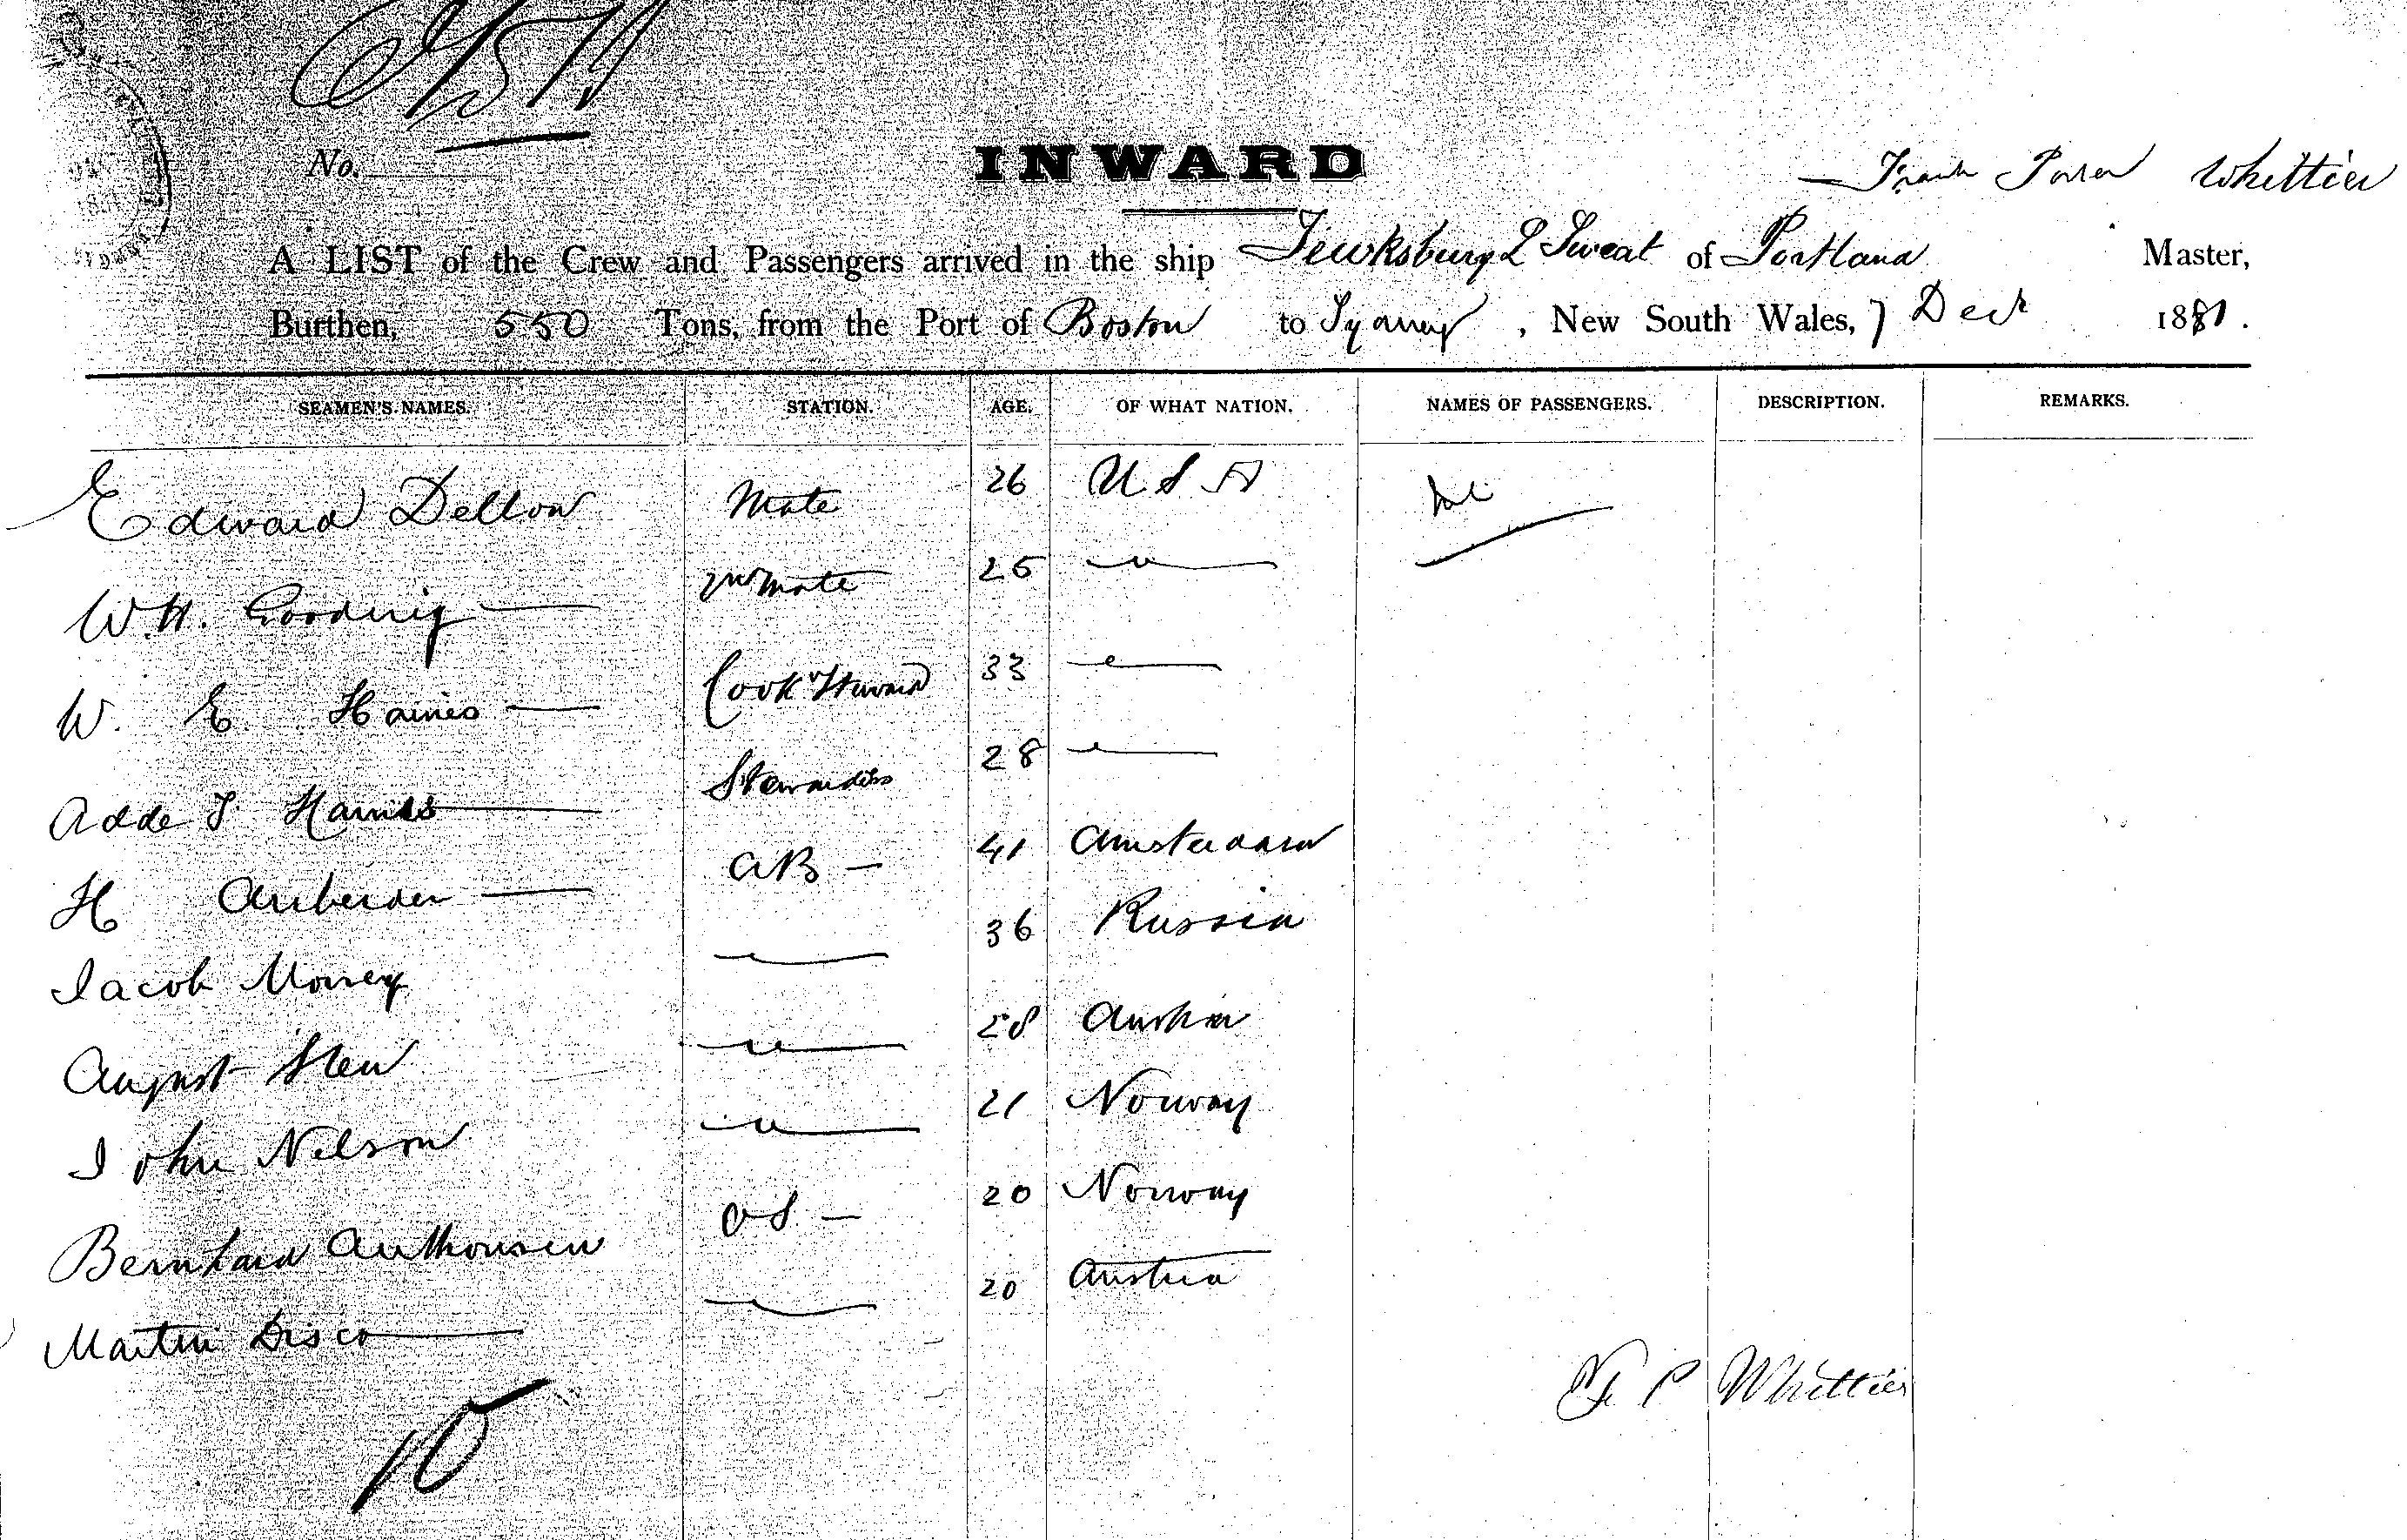 No.
INWARD
Frank Whittier
A LIST of the Crew and Passengers arrived in the ship Tewksbury L Sweat of Portland Master,
Burthen, 550 Tons, from the Port of Boston to Sydney, New South Wales, 7 Decr 1881.
SEAMEN'S NAMES. STATION. AGE. OF WHAT NATION. NAMES OF PASSENGERS. DESCRIPTION. REMARKS.
Edward Mate 26 U S A
W. H. Gooding 2nd Mate 25 "
W. E. Haines Cook & Steward 33 "
Adde Haines Stewardess 28 "
H AB 41 Amsterdam
Jacob " 36 Russia
August " 28 Austria
John Nelson " 21 Norway
Bernhard Anthonsen OS 20 Norway
Martin Disco " 20 Austria
F P Whittier
10